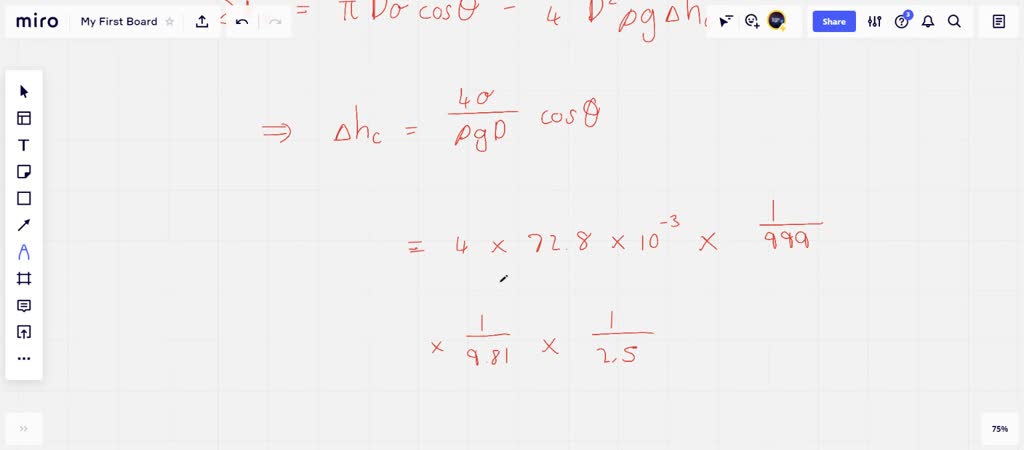 miro My First Board Share 3
= π D σ cos θ - 4 D² ρ g Δ h
⇒ Δh_c = 4σ / ρgD cos θ
= 4 × 72.8 × 10⁻³ × 1/999
× 1/9.81 × 1/2.5
T
75%